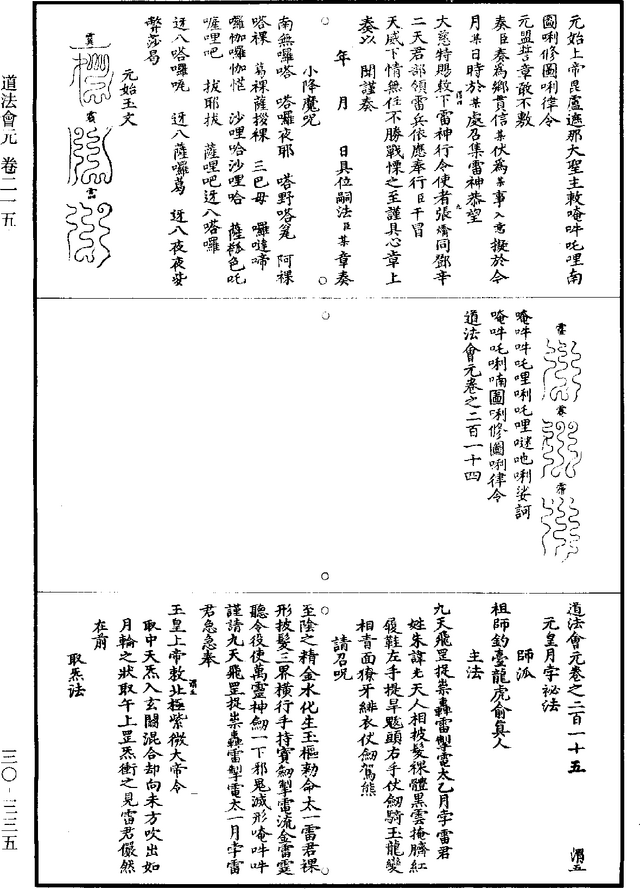 元始上帝毘盧遮那大聖主敕唵吽吒哩南
圖唎修圖唎律令
元盟誓章敢不敷
奏臣奏為鄉貫信某伏為某事入意擬於今
月某日時於某處召集雷神恭望
大慈特賜敕下雷神行令使者張燐同鄧辛
二天君部領雷兵依應奉行臣干冒
天威下情無任不勝戰慄之至謹具心章上
奏以 聞謹奏
年 月 日具位嗣法臣某章奏
小降魔咒
南無囉嗒 嗒囉夜耶 嗒野嗒 阿裸
嗒裸 葛裸薩授裸 三巴母 囉噠啼
囉怛 沙哩哈沙哩哈 薩 色吒
喔哩吧 拔耶拔 薩哩吧迓八嗒囉
迓八嗒囉呢 迓八薩囉葛 迓八夜夜
莎曷
元始玉文
道法會元 卷二一五
唵吽吽吒哩唎吒哩噠吔唎娑訶
唵吽吒唎喃圖唎修圖唎律令
道法會元卷之二百一十四
道法會元卷之二百一十五 渭五
元皇月孛祕法
師派
祖師釣臺龍虎俞真人
主法
九天飛罡捉祟轟雷掣電太乙月孛雷君
姓朱諱光天人相披髮裸體黑雲掩臍紅
履鞋左手提旱魃頭右手仗劍騎玉龍變
相青面獠牙緋衣仗劍駕熊
請召咒
至陰之精金水化生玉樞勑命太一雷君裸
形披髮三界橫行手持寶劍掣電流金雷霆
聽令役使萬靈神劍一下邪鬼滅形唵吽吽
謹請九天飛罡捉祟轟雷掣電太一月孛雷
君急急奉
玉皇上帝敕北極紫微大帝令
取中天炁入玄關混合却向未方吹出如
月輪之狀取午上罡炁衝之見雷君儼然
在前
取炁法
三〇-三三五